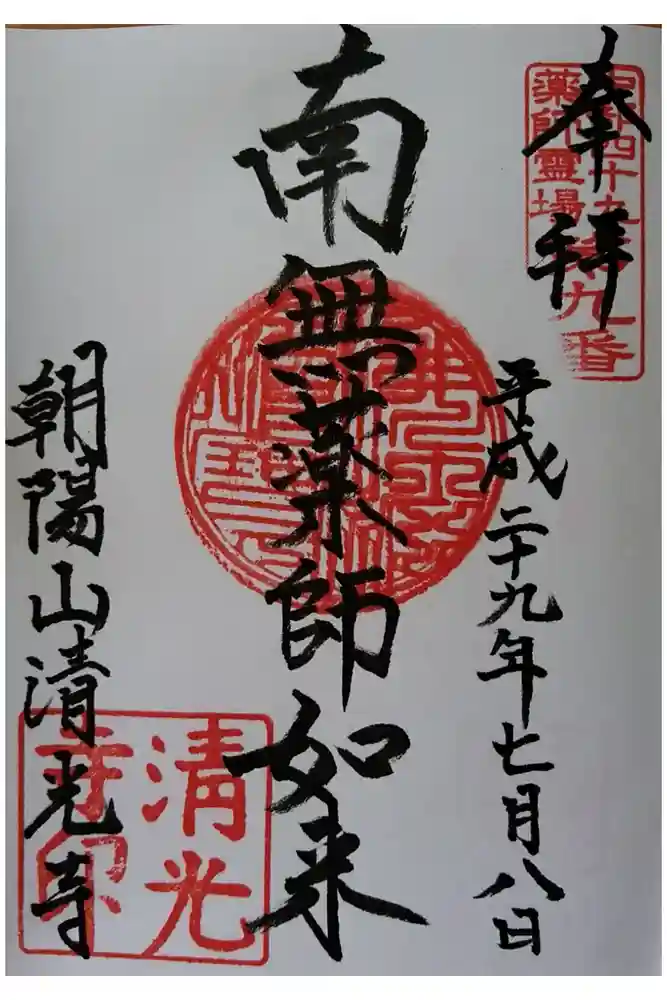 奉拝
中部四十九
薬師霊場
第九番
平成二十九年七月八日
南無薬師如来
朝陽山清光寺
清光
寺印